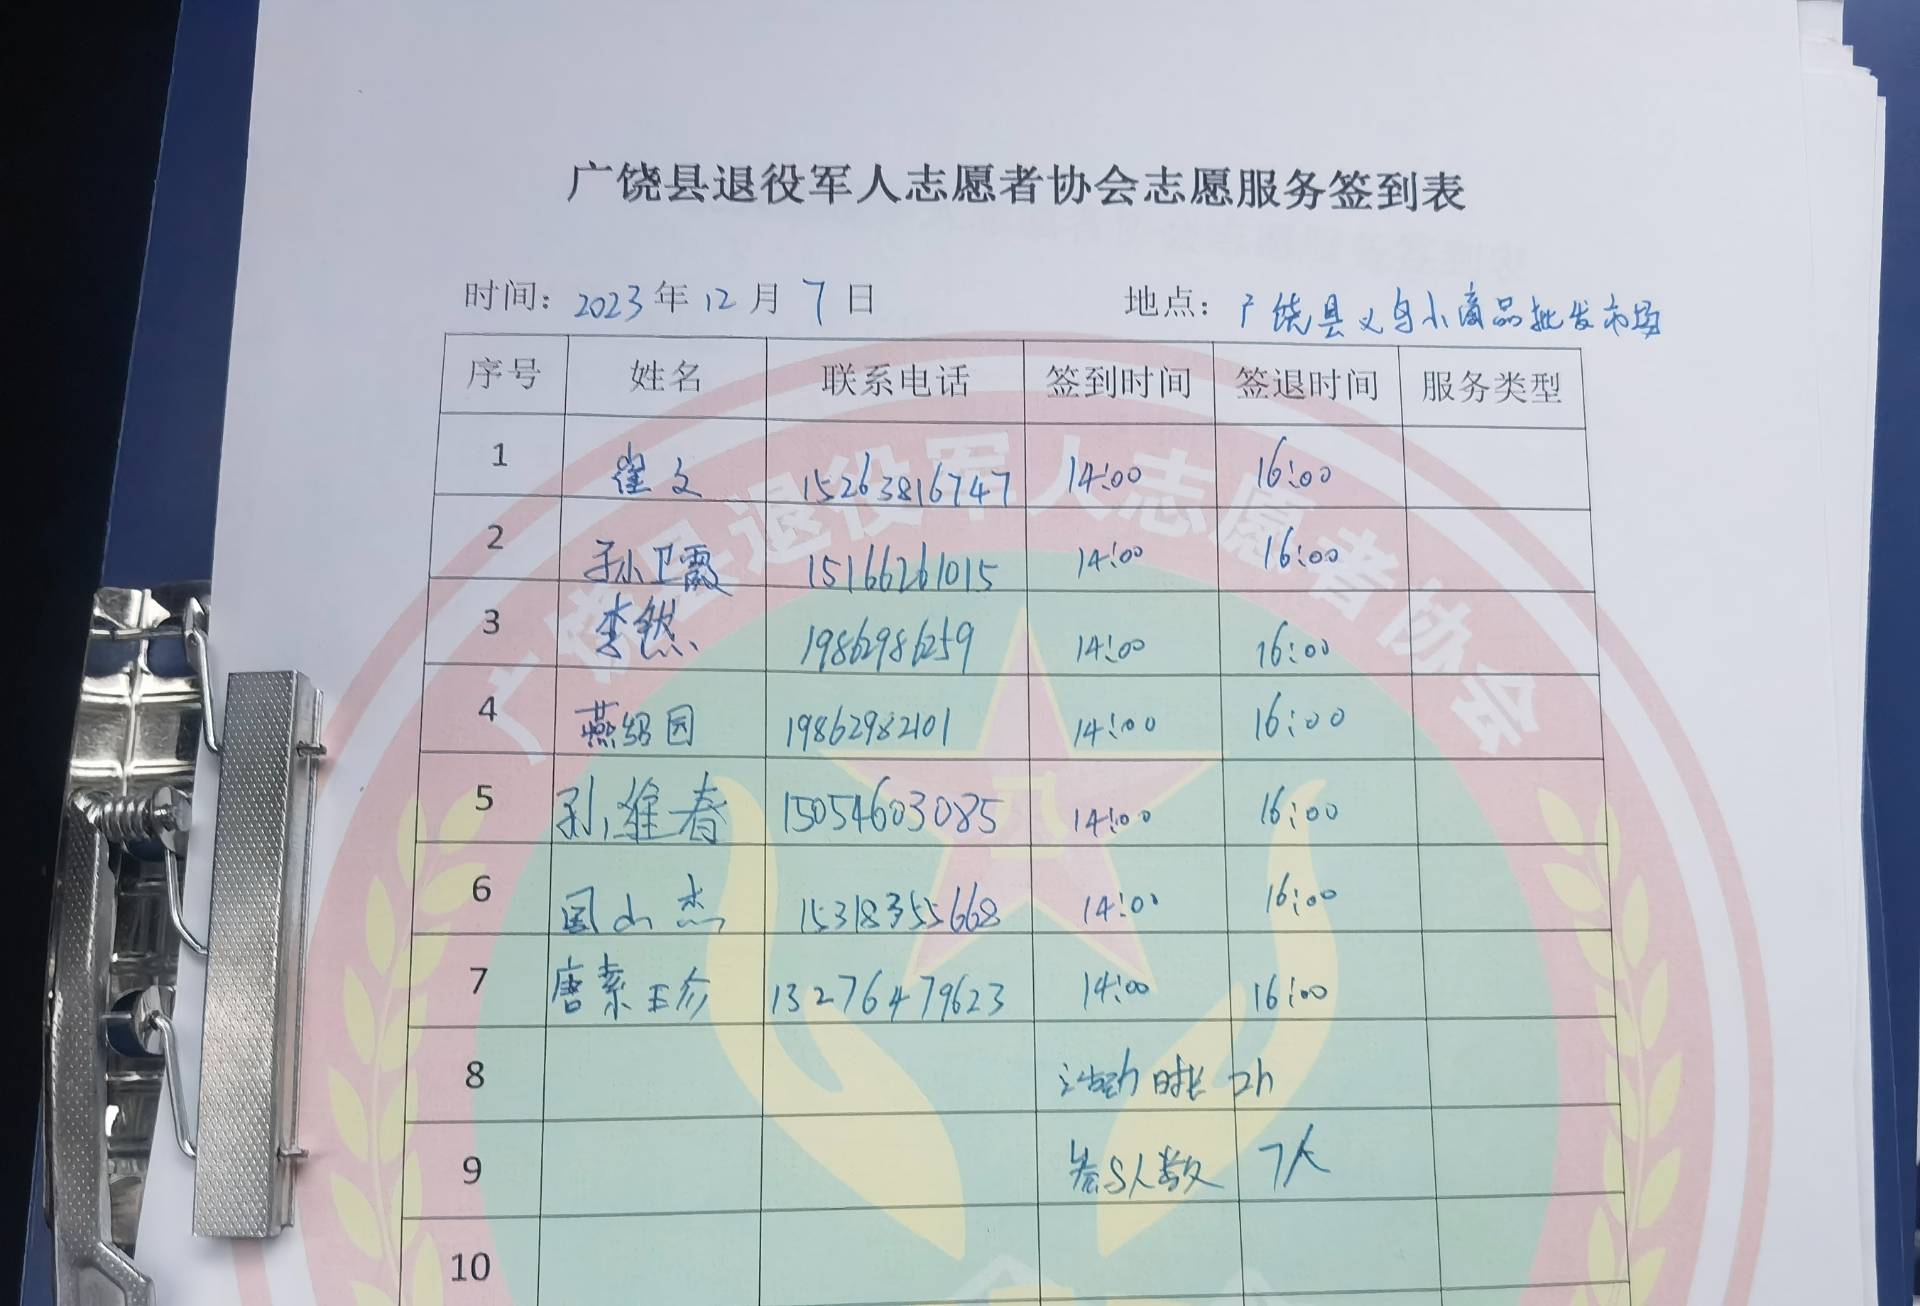 广饶县退役军人志愿者协会志愿服务签到表
时间: 2023年12月7日 地点: 广饶县义乌小商品批发市场
序号 姓名 联系电话 签到时间 签退时间 服务类型
1 崔文 15263816747 14:00 16:00
2 孙卫霞 15166261015 14:00 16:00
3 李然 19862986259 14:00 16:00
4 燕绍园 19862982101 14:00 16:00
5 孙维春 15054603085 14:00 16:00
6 国山杰 15318355668 14:00 16:00
7 唐素珍 13276479623 14:00 16:00
8 活动时长 2h
9 参与人数 7人
10
广饶县退役军人志愿者协会
八一